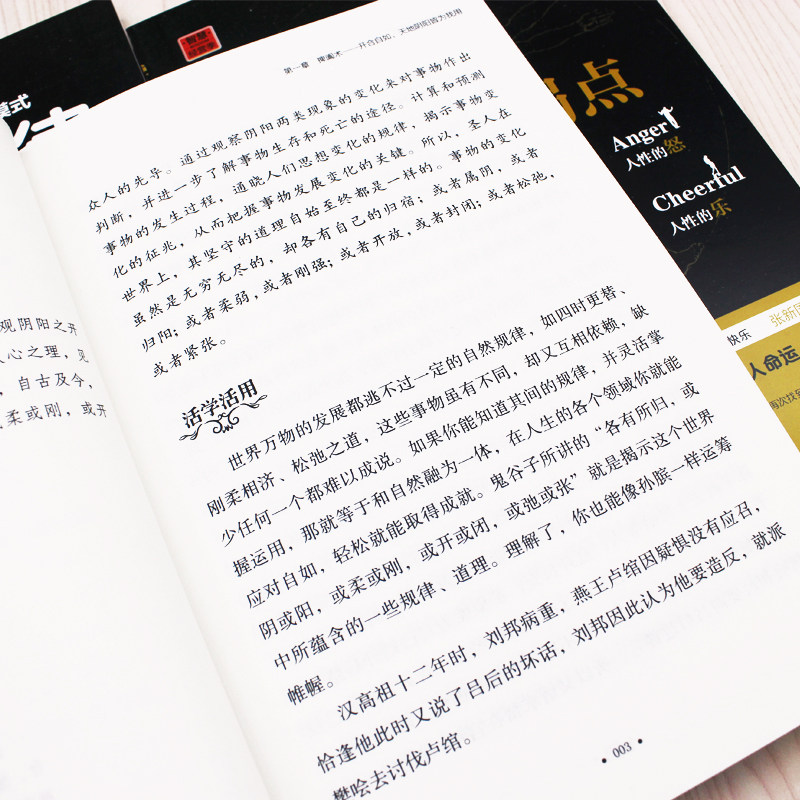 第一章 捭阖术——开合自如，天地阴阳皆为我用
众人的先导。通过观察阴阳两类现象的变化来对事物作出
判断，并进一步了解事物生存和死亡的途径。计算和预测
事物的发生过程，通晓人们思想变化的规律，揭示事物变
化的征兆，从而把握事物发展变化的关键。所以，圣人在
世界上，其坚守的道理自始至终都是一样的。事物的变化
虽然是无穷无尽的，却各有自己的归宿；或者属阴，或者
归阳；或者柔弱，或者刚强；或者开放，或者封闭；或者松弛，
或者紧张。
活学活用
世界万物的发展都逃不过一定的自然规律，如四时更替、
刚柔相济、松弛之道，这些事物虽有不同，却又互相依赖，缺
少任何一个都难以成说。如果你能知道其间的规律，并灵活掌
握运用，那就等于和自然融为一体，在人生的各个领域你就能
应对自如，轻松就能取得成就。鬼谷子所讲的“各有所归，或
阴或阳，或柔或刚，或开或闭，或弛或张”就是揭示这个世界
中所蕴含的一些规律、道理。理解了，你也能像孙膑一样运筹
帷幄。
汉高祖十二年时，刘邦病重，燕王卢绾因疑惧没有应召，
恰逢他此时又说了吕后的坏话，刘邦因此认为他要造反，就派
樊哙去讨伐卢绾。
003
观阴阳之开
人心之理，见
，自古及今，
柔或刚，或开
模式
点
Anger
人性的怒
Cheerful
人性的乐
快乐
张新国
人命运
再次找